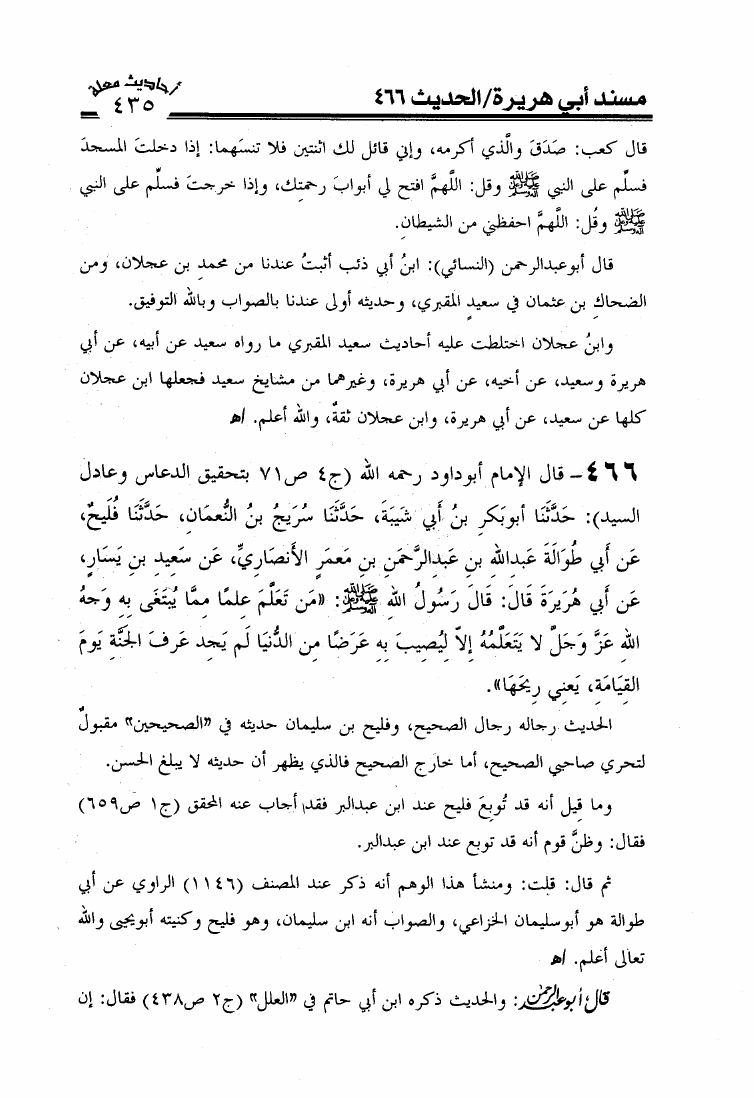 مسند أبي هريرة/الحديث ٤٦٦
أحاديث معلة
٤٣٥
قال كعب: صَدَقَ والَّذي أكرمه، وإني قائل لك اثنتين فلا تنسَهما: إذا دخلتَ المسجدَ
فسلِّم على النبي ﷺ وقل: اللَّهمَّ افتح لي أبوابَ رحمتِك، وإذا خرجتَ فسلِّم على النبي
ﷺ وقُل: اللَّهمَّ احفظني من الشيطان.
قال أبوعبدالرحمن (النسائي): ابنُ أبي ذئب أثبتُ عندنا من محمدِ بن عجلان، ومن
الضحاكِ بن عثمان في سعيدٍ المقبري، وحديثه أولى عندنا بالصواب وبالله التوفيق.
وابنُ عجلان اختلطت عليه أحاديث سعيد المقبري ما رواه سعيد عن أبيه، عن أبي
هريرة وسعيد، عن أخيه، عن أبي هريرة، وغيرهما من مشايخ سعيد فجعلها ابن عجلان
كلها عن سعيد، عن أبي هريرة، وابن عجلان ثقةٌ، والله أعلم. اهـ
٤٦٦- قال الإمام أبوداود رحمه الله (ج٤ ص٧١ بتحقيق الدعاس وعادل
السيد): حَدَّثَنَا أبوبَكرِ بنُ أبي شَيبَةَ، حَدَّثَنَا سُرَيجُ بنُ النُّعمَانِ، حَدَّثَنَا فُلَيحٌ،
عَن أبي طُوَالَةَ عبدِالله بنِ عَبدِالرَّحمَنِ بنِ مَعمَرٍ الأَنصَارِيِّ، عَن سَعِيدِ بنِ يَسَارٍ،
عَن أبي هُرَيرَةَ قَالَ: قَالَ رَسُولُ الله ﷺ: «مَن تَعَلَّمَ عِلمًا مِمَّا يُبتَغَى بِهِ وَجهُ
الله عَزَّ وَجَلَّ لا يَتَعَلَّمُهُ إلاَّ لِيُصِيبَ بِهِ عَرَضًا مِن الدُّنيَا لَم يَجِد عَرفَ الجَنَّةِ يَومَ
القِيَامَةِ، يَعنِي رِيحَهَا».
الحديث رجاله رجال الصحيح، وفليح بن سليمان حديثه في "الصحيحين" مقبولٌ
لتحري صاحبي الصحيح، أما خارج الصحيح فالذي يظهر أن حديثه لا يبلغ الحسن.
وما قيل أنه قد تُوبِعَ فليح عند ابن عبدالبر فقد أجاب عنه المحقق (ج١ ص٦٥٩)
فقال: وظنَّ قوم أنه قد توبع عند ابن عبدالبر.
ثم قال: قلت: ومنشأ هذا الوهم أنه ذكر عند المصنف (١١٤٦) الراوي عن أبي
طوالة هو أبوسليمان الخزاعي، والصواب أنه ابن سليمان، وهو فليح وكنيته أبويحيى والله
تعالى أعلم. اهـ
قال أبو عبد الرحمن: والحديث ذكره ابن أبي حاتم في "العلل" (ج٢ ص٤٣٨) فقال: إن